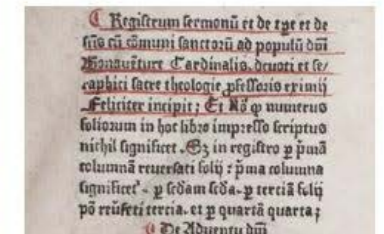 Registrum sermonū et de tp̄e et de
sc̄tis cū cōmuni sanctorū ad populū dn̄i
Bonauēture Cardinalis. deuoti et se/
raphici sacre theologie p̄fessoris eximij
Feliciter incipit; Et Nō ꝙ numerus
foliorum in hoc libro impresso scriptus
nichil significet. Sz in registro ꝑ pͥmā
columnā reuersati folij: pͥma columna
significet᷑. ꝑ scdam scda. ꝑ terciā folij
pō reūseti tercia. et ꝑ quartā quarta;
De Aduentu dn̄i